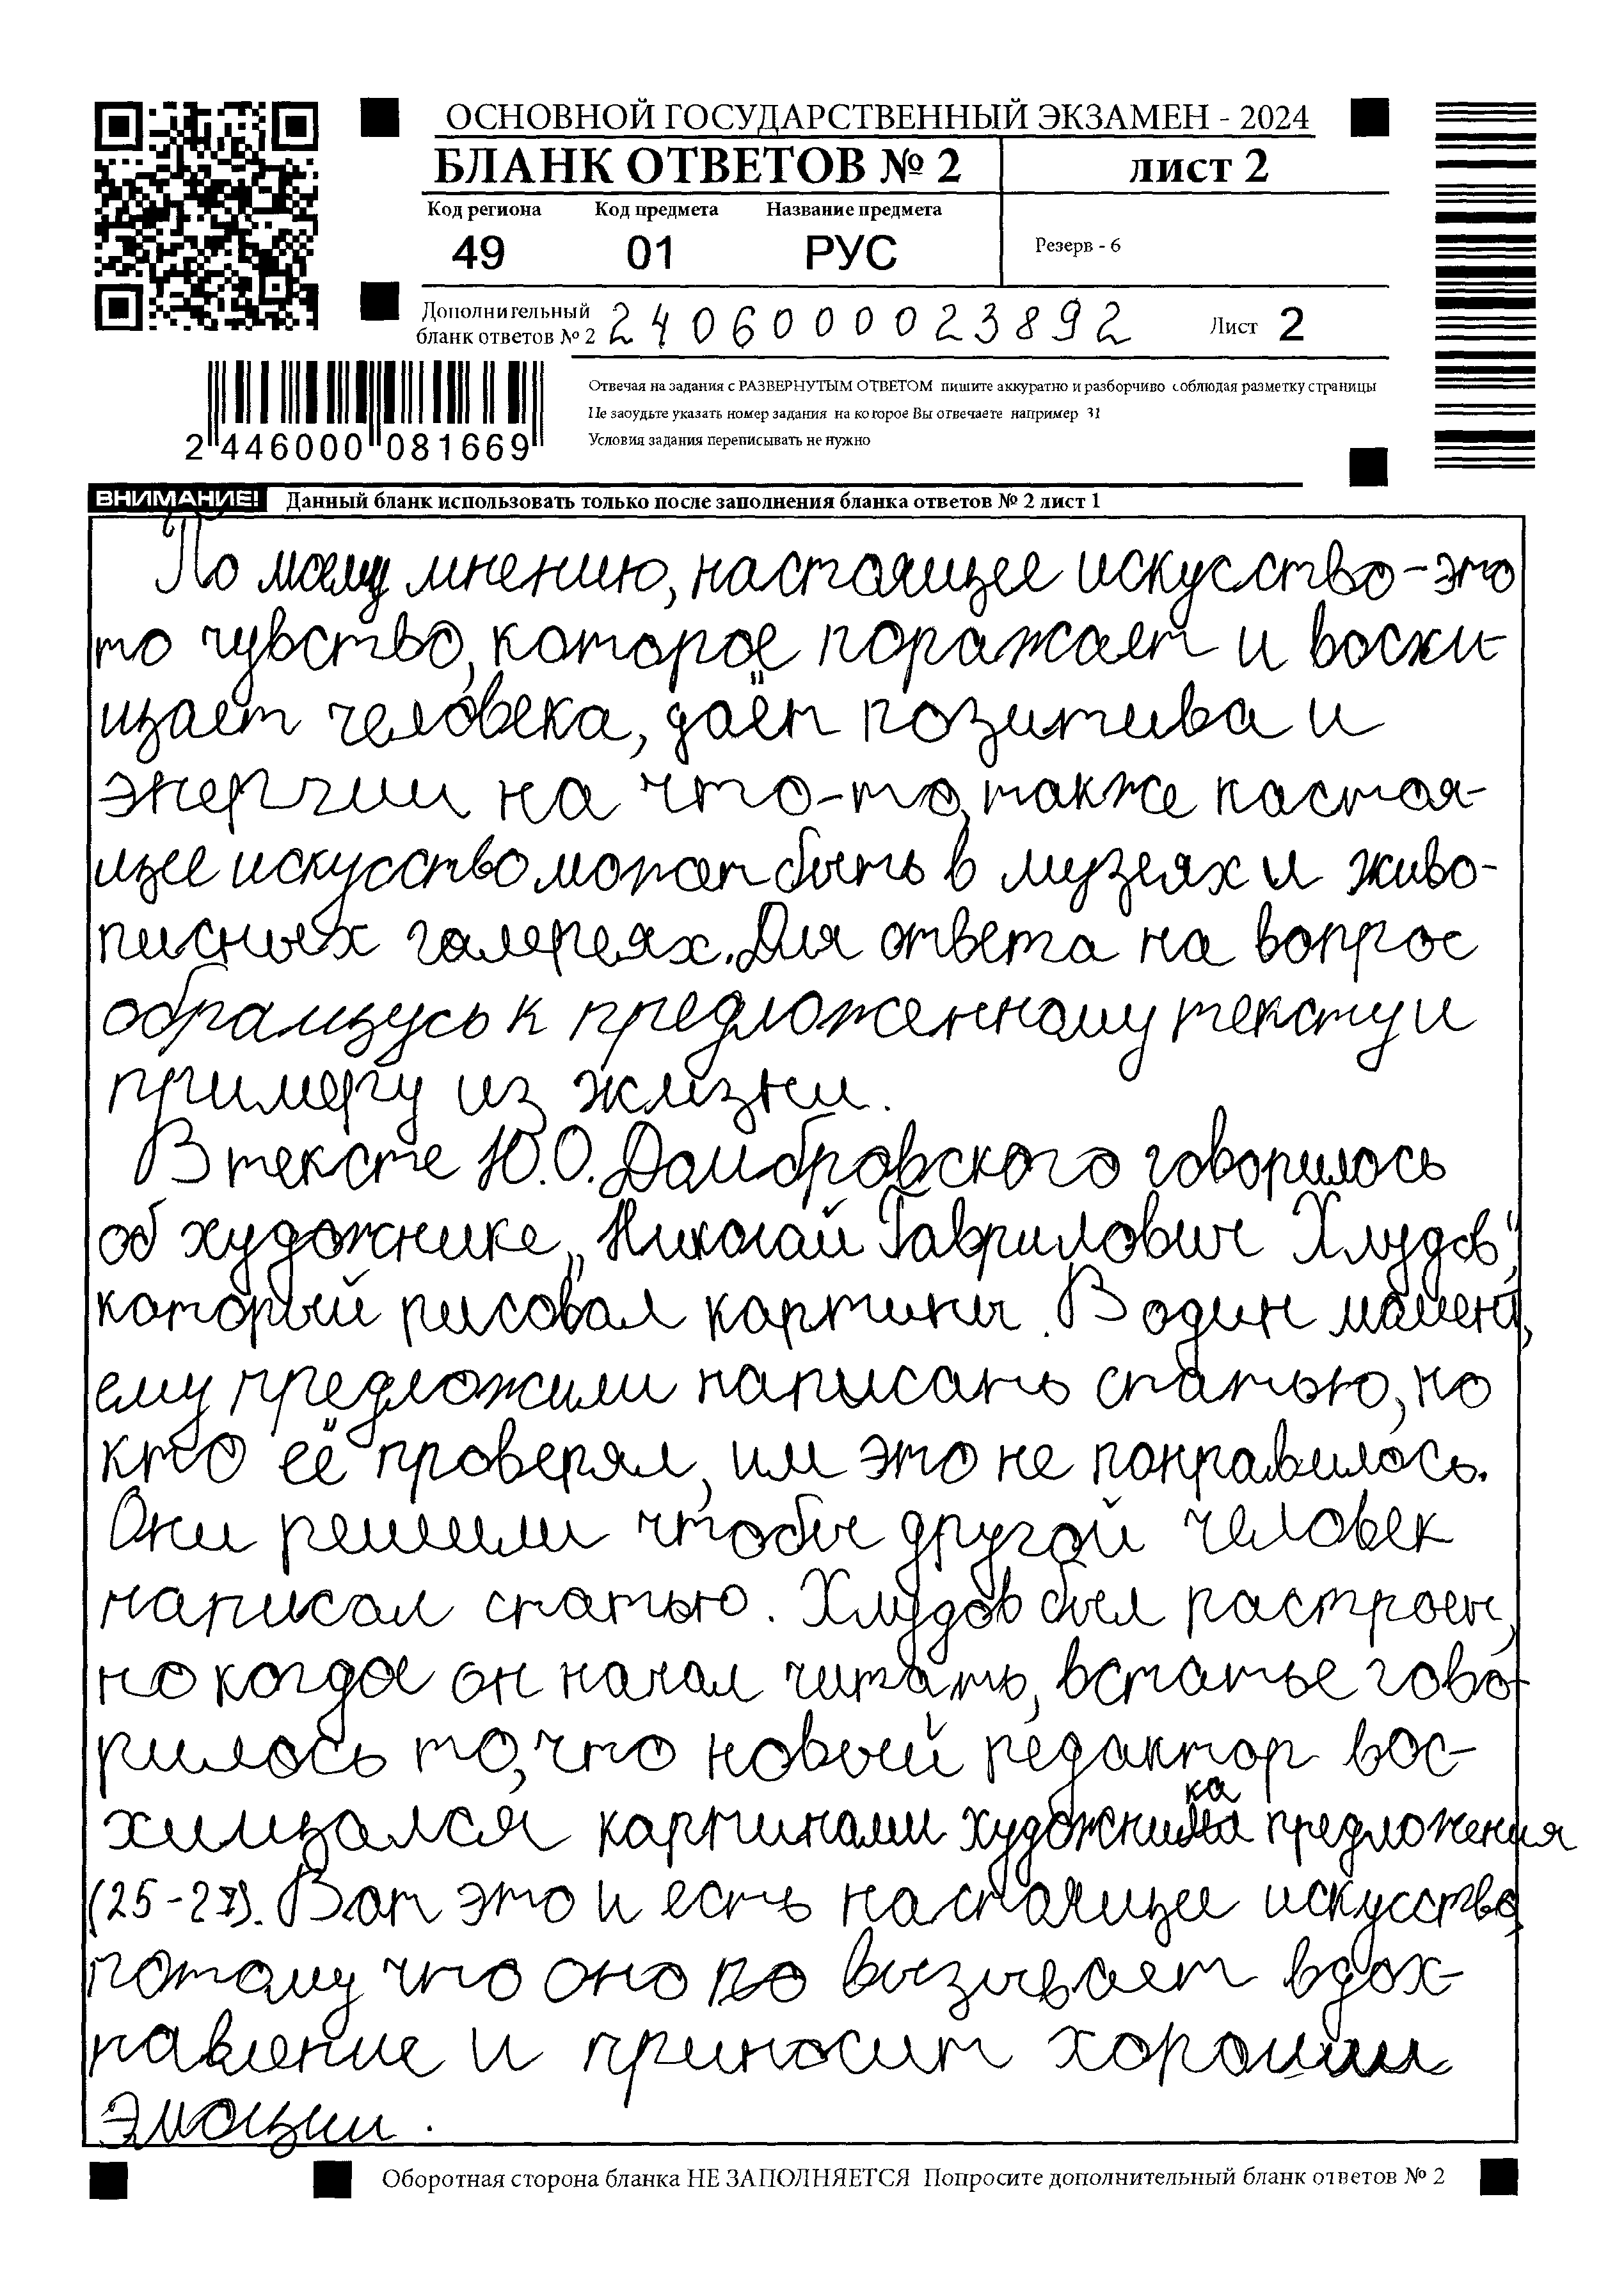 ОСНОВНОЙ ГОСУДАРСТВЕННЫЙ ЭКЗАМЕН - 2024
БЛАНК ОТВЕТОВ № 2
лист 2
Код региона Код предмета Название предмета
49 01 РУС
Резерв - 6
Дополнительный
бланк ответов № 2
2406000023892
Лист 2
Отвечая на задания с РАЗВЕРНУТЫМ ОТВЕТОМ пишите аккуратно и разборчиво соблюдая разметку страницы
Не забудьте указать номер задания на которое Вы отвечаете например 31
Условия задания переписывать не нужно
2 446000 081669
ВНИМАНИЕ! Данный бланк использовать только после заполнения бланка ответов № 2 лист 1
По моему мнению, настоящее искусство-это
то чувство, которое поражает и восхи-
щает человека, даёт позитива и
энергии на что-то, также настоя-
щее искусство может быть в музеях и живо-
писных галереях. Для ответа на вопрос
обращусь к предложенному тексту и
примеру из жизни.
В тексте Ю.О. Домбровского говорилось
об художнике „Николай Гаврилович Хлудов“,
который рисовал картины. В один момент,
ему предложили написать статью, но
кто её проверял, им это не понравилось.
Они решили чтобы другой человек
написал статью. Хлудов был растроен,
но когда он начал читать, в статье гово-
рилось то, что новый редактор вос-
хищался картинами художника предложения
(25-27). Вот это и есть настоящее искусство,
потому что оно вызывает вдох-
навление и приносит хорошии
эмоции.
Оборотная сторона бланка НЕ ЗАПОЛНЯЕТСЯ Попросите дополнительный бланк ответов № 2